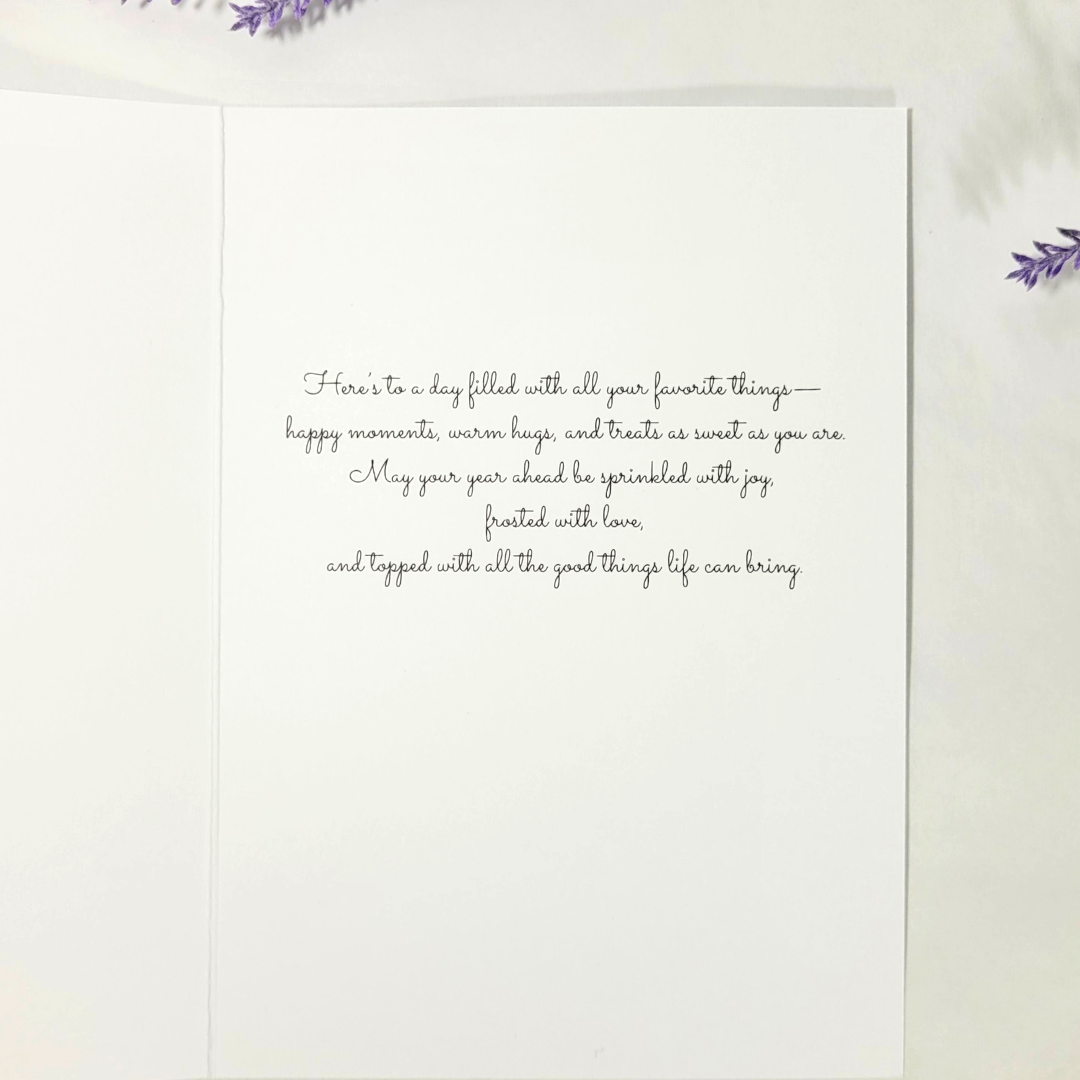 Here's to a day filled with all your favorite things—
happy moments, warm hugs, and treats as sweet as you are.
May your year ahead be sprinkled with joy,
frosted with love,
and topped with all the good things life can bring.